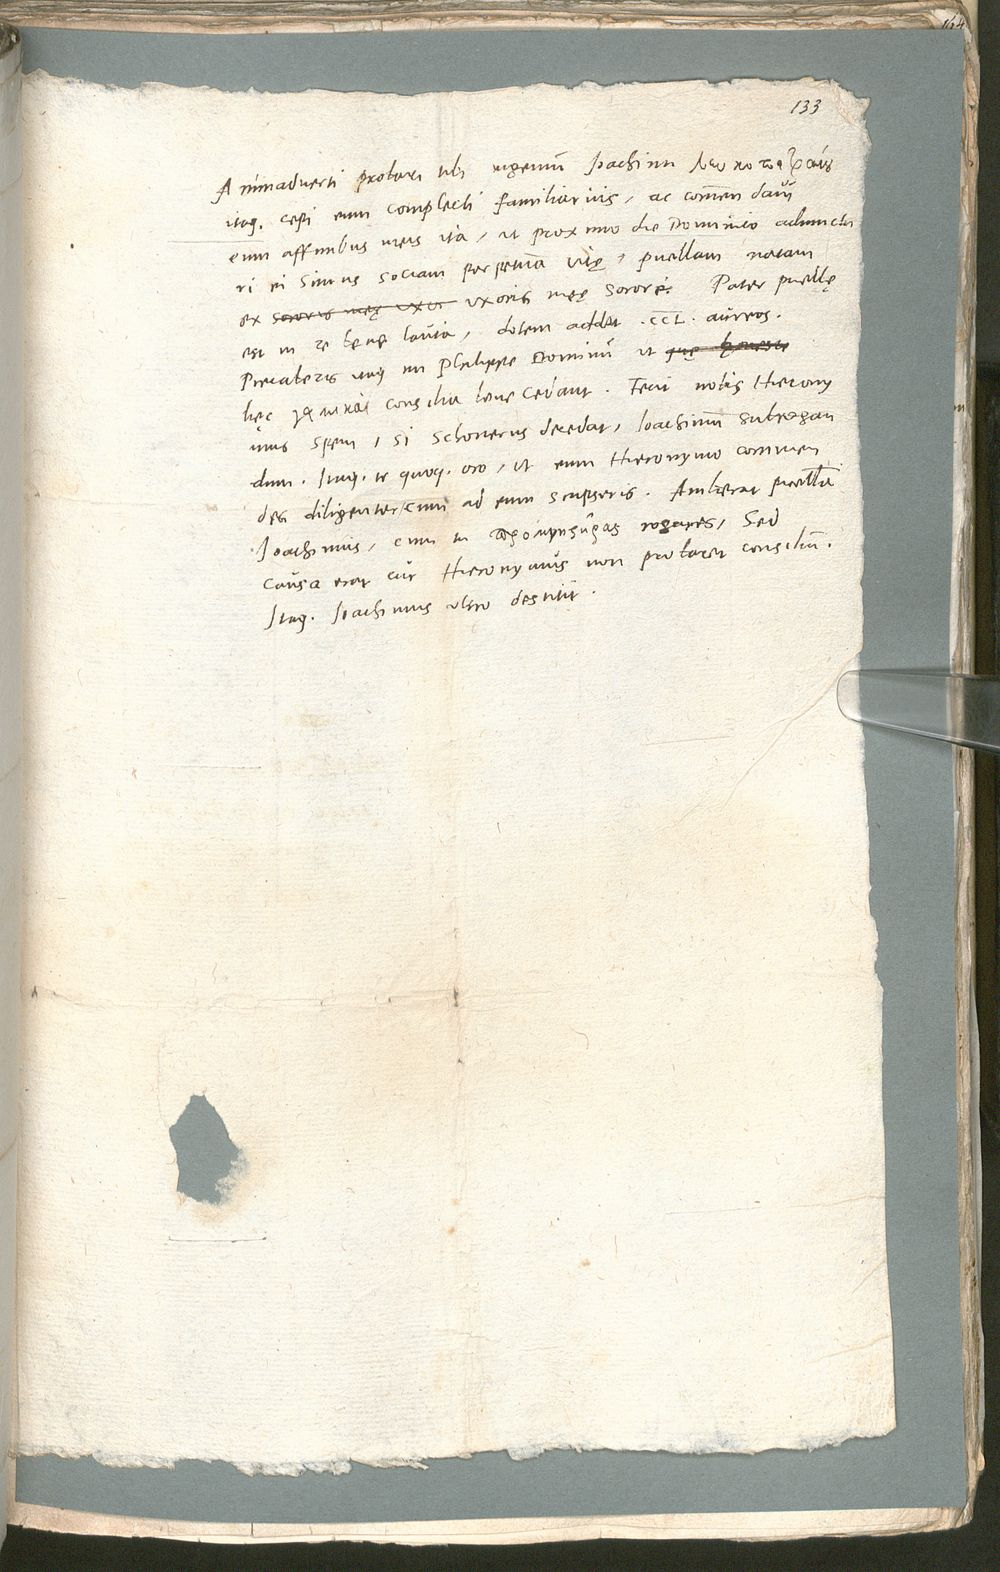 133
Animadverti probari tibi ingeniū Joachimi
itaq. cepi eum complecti familiarius, ac comēndavi
eum affinibus meis ita, ut proximo die Dominico adiuncturi
ei simus sociam perpetuā vitę, puellam natam
ex sororis męę uxor uxoris męę sorore. Pater puellę
est in re lauta, dotem addet .CCL. aureos.
Precaberis itaq mi Philippe Dominū ut quę honeste
hęc consilia bene cedant. Fecit nobis Hierony
mus spem, si Schonerus decedat, Joachimū subrogan
dum. Itaq. te quoq. oro, ut eum Hieronymo commen
des diligenter, cum ad eum scripseris. Ambierat puellā
Joachimus, cum tu rogares, Sed
causa erat cur Hieronymus non probaret consiliū.
Itaq. Joachimus ultro destitit.